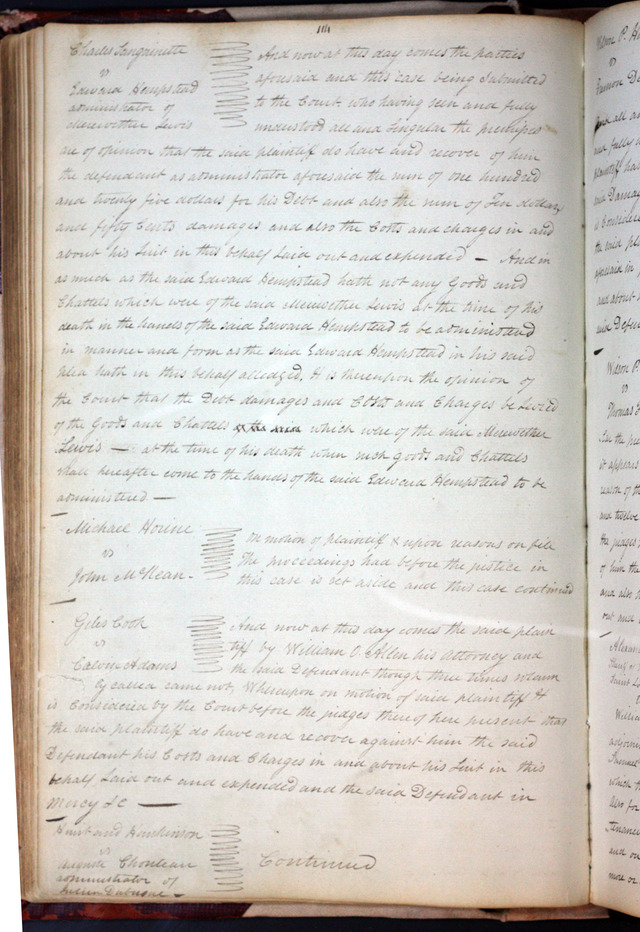 114
Charles Sanguinette
vs
Edward Hempstead
administrator of
Merewether Lewis
And now at this day comes the parties
aforesaid and this case being Submitted
to the Court who having seen and fully
understood all and Singular the premises
are of opinion that the said plaintiff do have and recover of him
the defendant as administrator aforesaid the sum of one hundred
and twenty five dollars for his Debt and also the sum of Ten dollars
and fifty Cents damages and also the Costs and charges in and
about his Suit in this behalf Laid out and expended — And in
as much as the said Edward Hempstead hath not any Goods and
Chattels which were of the said Meriwether Lewis at the time of his
death in the hands of the said Edward Hempstead to be administered
in manner and form as the said Edward Hempstead in his said
plea hath in this behalf alledged, It is thereupon the opinion of
the Court that the Debt damages and Costs and Charges be Levied
of the Goods and Chattels which were of the said Merewether
Lewis — at the time of his death when such Goods and Chattels
shall hereafter come to the hands of the said Edward Hempstead to be
administered —
Michael Horine
vs
John McKean -
On motion of plaintiff & upon reasons on file
The proceedings had before the justice in
this case is set aside and this case continued
Giles Cook
vs
Calvin Adams
And now at this day comes the said plain
tiff by William O. Allen his attorney and
the said Defendant though three times solemn
ly called came not, Whereupon on motion of said plaintiff It
is Considered by the Court before the judges thereof here present that
the said plaintiff do have and recover against him the said
Defendant his Costs and Charges in and about his Suit in this
behalf Laid out and expended and the said Defendant in
Mercy &c —
Hunt and Hankinson
vs
Auguste Chouteau
administrator of
Julien Dubuque -
Continued
Wilson P.
vs
and fully
plaintiff ha
said Damag
is Considere
the said pl
aforesaid in
and about
said Defen
Wilson P.
vs
Thomas
it appears
reason of the
and twelve
the judges
of him the
and also
out and
Alexan
Saint L
Willia
adjourn
Samuel
which
and on
more or